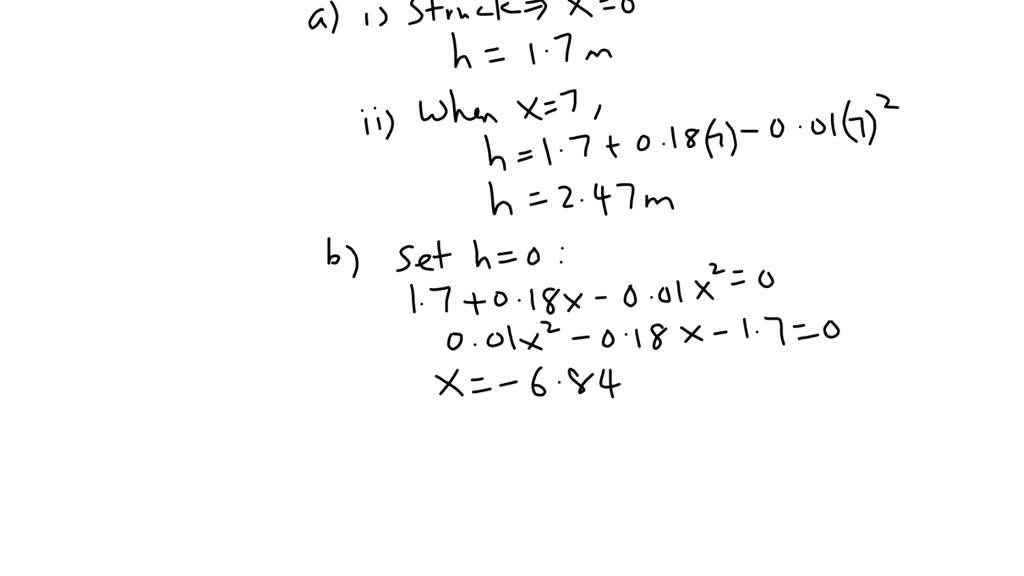 a) i) Struck ⇒ x=0
h = 1.7 m
ii) When x=7,
h = 1.7 + 0.18(7) - 0.01(7)²
h = 2.47 m
b) Set h=0:
1.7 + 0.18x - 0.01x² = 0
0.01x² - 0.18x - 1.7 = 0
x = -6.84